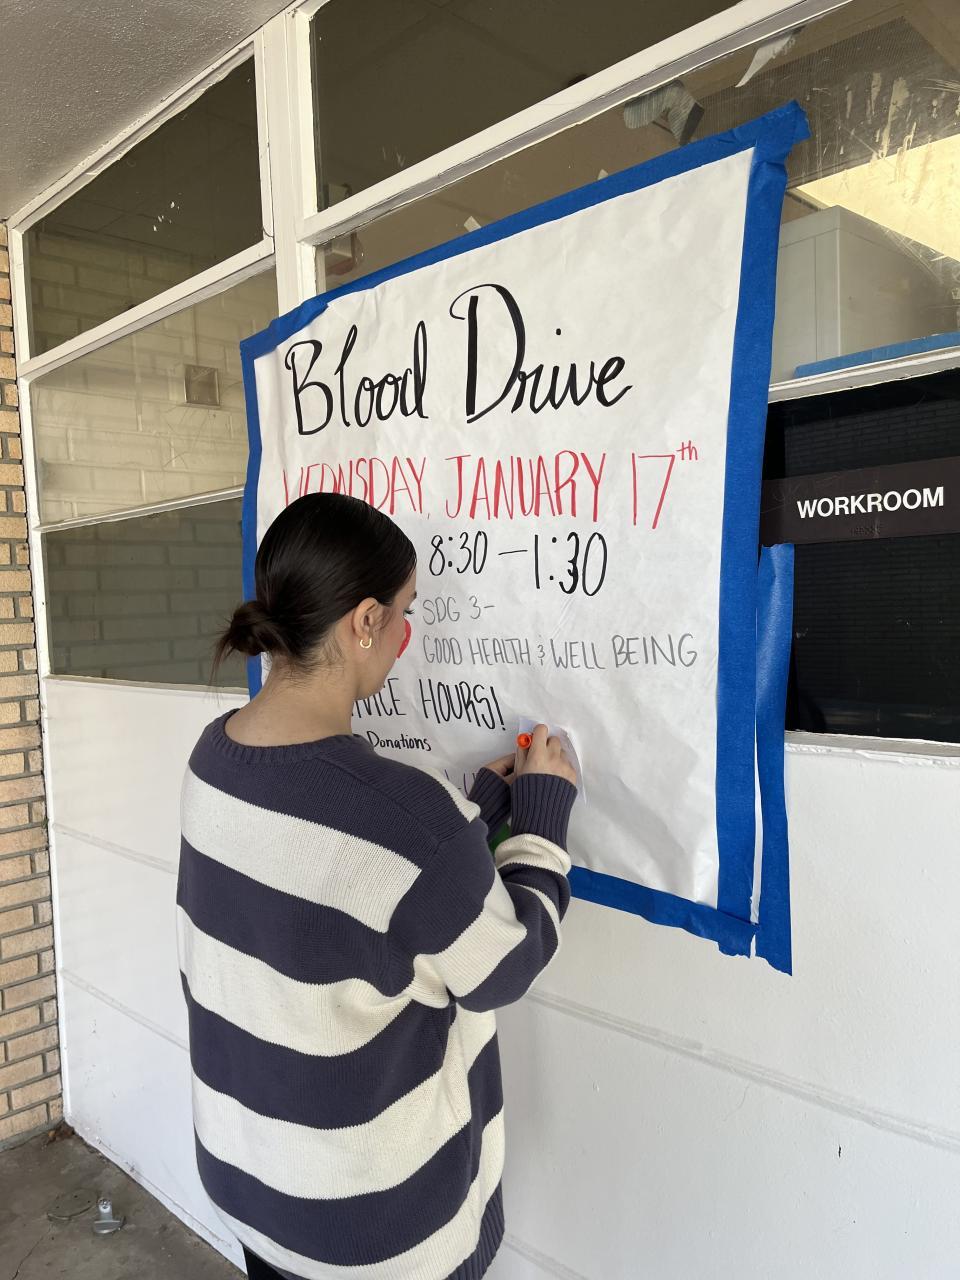 Blood Drive
WEDNSDAY, JANUARY 17th
8:30-1:30
SDG 3-
GOOD HEALTH & WELL BEING
HOURS!
Donations
WORKROOM